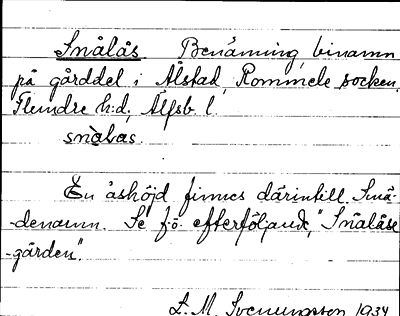 Snålås Benämning, binamn
på gårddel i Ålstad, Rommele socken,
Flundre h:d, Älfsb. l.
snålas.
En åshöjd finnes därintill. Smä-
-denamn. Se f.ö. efterföljande, "Snålåse
-gården".
L. M. Svenungsson 1934